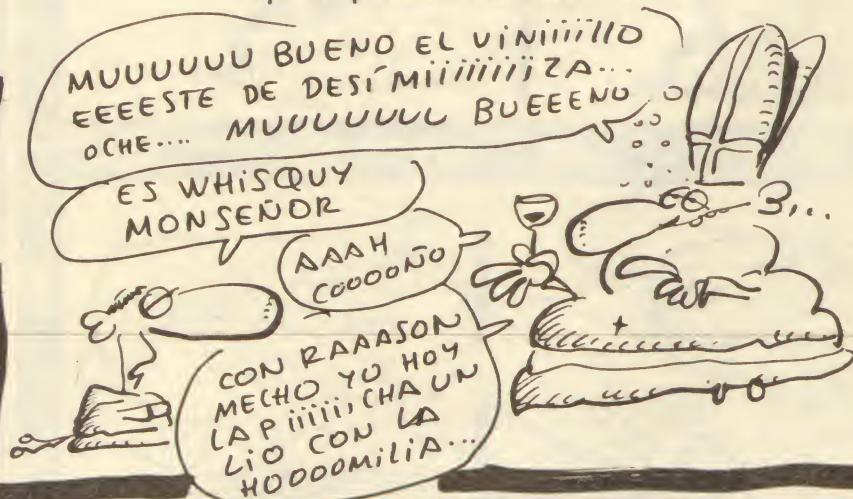 MUUUUUU BUENO EL VINIIIIILLO
EEEESTE DE DESÍMIIIIIIIIZA...
OCHE.... MUUUUUUU BUEEENO
ES WHISQUY
MONSEÑOR
AAAH
COOOOÑO
CON RAAASON
MECHO YO HOY
LA PIIIII, CHA UN
LIO CON LA
HOOOOMILIA...